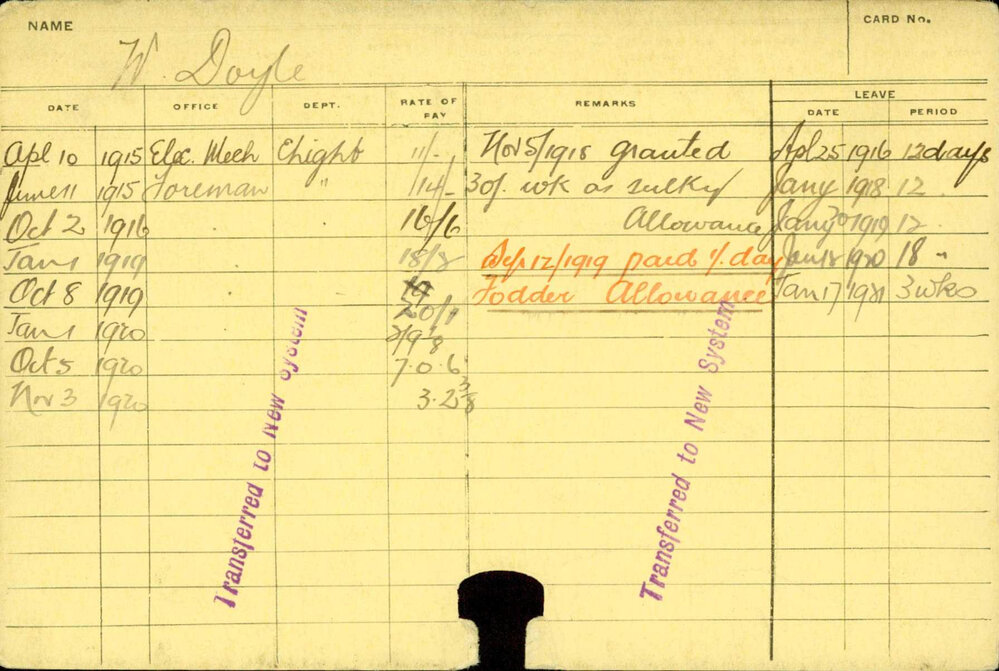 NAME W. Doyle CARD No.
DATE OFFICE DEPT. RATE OF PAY REMARKS LEAVE
DATE PERIOD
Apl 10 1915 Elec. Mech Elight 11/- Nov 5/1918 granted Apl 25 1916 12 days
June 11 1915 Foreman " 14/- 30/. wk as sulky Jany 1918 12
Oct 2 1916 16/6 Allowance Jany 1919 12
Jan 1 1919 18/8 Sep 12/1919 paid 1/. day Jan 18 1920 18 "
Oct 8 1919 20/1 Fodder Allowance Jan 17 1921 3 wks
Jan 1 1920
Oct 5 1920 7.0.6
Nov 3 1920 3.2 3/8
Transferred to New System
Transferred to New System